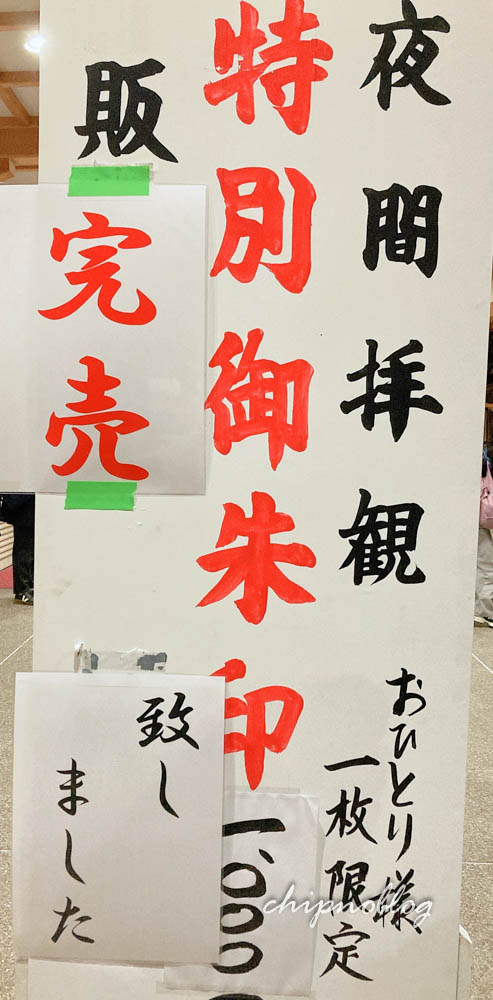 夜間拝観
おひとり様
一枚限定
特別御朱印
一、〇〇〇
販
完売
致し
ました
chipnoblog